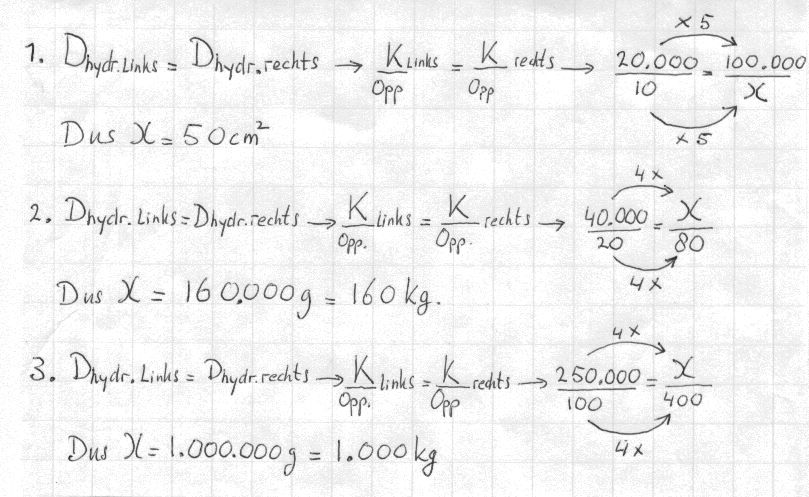 1. Dhydr.Links = Dhydr.rechts → K/Opp Links = K/Opp rechts → 20.000/10 = 100.000/X ×5 ×5
Dus X = 50 cm²
2. Dhydr.Links = Dhydr.rechts → K/Opp. Links = K/Opp. rechts → 40.000/20 = X/80 4× 4×
Dus X = 160.000g = 160 kg.
3. Dhydr.Links = Dhydr.rechts → K/Opp. links = K/Opp rechts → 250.000/100 = X/400 4× 4×
Dus X = 1.000.000g = 1.000 kg